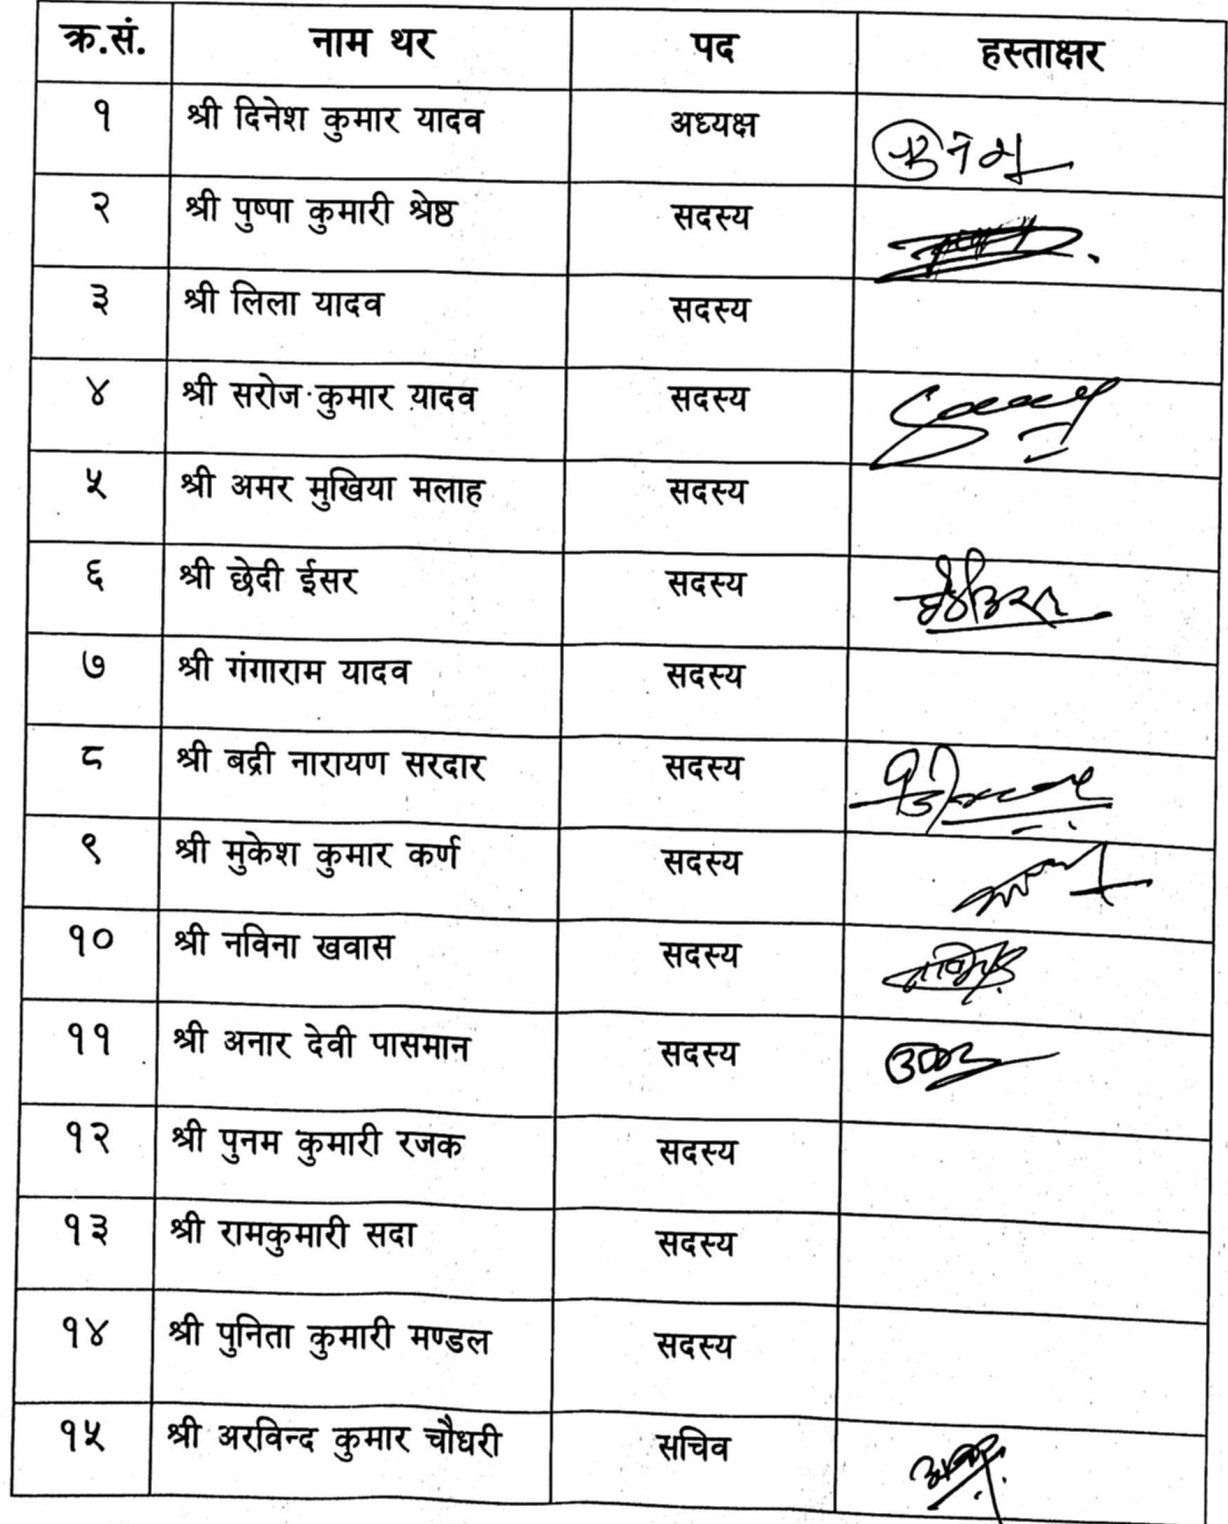 क्र.सं. नाम थर पद हस्ताक्षर
१ श्री दिनेश कुमार यादव अध्यक्ष
२ श्री पुष्पा कुमारी श्रेष्ठ सदस्य
३ श्री लिला यादव सदस्य
४ श्री सरोज कुमार यादव सदस्य
५ श्री अमर मुखिया मलाह सदस्य
६ श्री छेदी ईसर सदस्य
७ श्री गंगाराम यादव सदस्य
८ श्री बद्री नारायण सरदार सदस्य
९ श्री मुकेश कुमार कर्ण सदस्य
१० श्री नविना खवास सदस्य
११ श्री अनार देवी पासमान सदस्य
१२ श्री पुनम कुमारी रजक सदस्य
१३ श्री रामकुमारी सदा सदस्य
१४ श्री पुनिता कुमारी मण्डल सदस्य
१५ श्री अरविन्द कुमार चौधरी सचिव